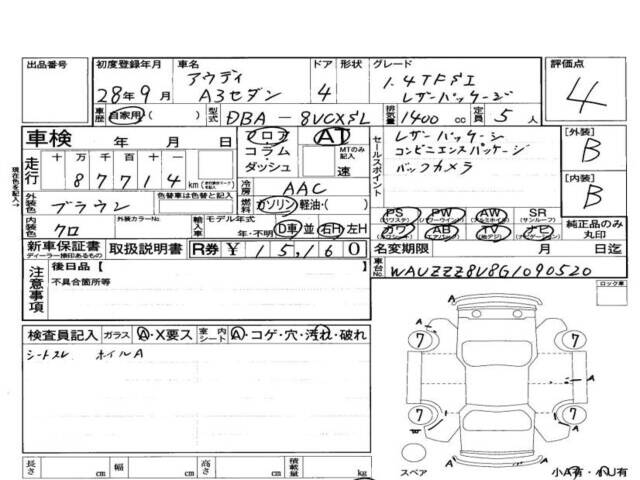 出品番号
初度登録年月
28年9月
車歴 自家用 ( )
車名
アウディ
A3セダン
ドア
4
形状
グレード
1.4TFSI
レザーパッケージ
型式 DBA-8VCXSL
排気量 1400 cc
定員 5 人
評価点
4
車検 年 月 日
走行
十 万 千 百 十 一
8 7 7 1 4 km
現在色を記入→
外装色 ブラウン
色替車は色替と記入
内装色 クロ
外装カラーNo.
フロア
コラム・
ダッシュ
AT
MTのみ記入
速
冷房 AAC
燃料 ガソリン・軽油・( )
輸入車
モデル年式
年・不明
D車 並
右H 左H
セールスポイント
レザーパッケージ
コンビニエンスパッケージ
バックカメラ
PS (パワステ) PW (パワーウインド) AW (アルミホイル) SR (サンルーフ)
カワ AB TV ナビ
[外装]
B
[内装]
B
純正品のみ
丸印
新車保証書
ディーラー捺印あるもの
取扱説明書
R券 ¥ 15,160
名変期限 月 日迄
車台No. WAUZZZ8V8G1090520
注意事項
後日品【
不具合箇所等
ロック車
検査員記入
ガラス A・X要ス
室内シート A・コゲ・穴・汚れ・破れ
シートスレ ホイルA
7
7
7
7
A
A
A
A
スペア
小A有・小U有
長さ cm
幅 cm
高さ cm
積載量 kg